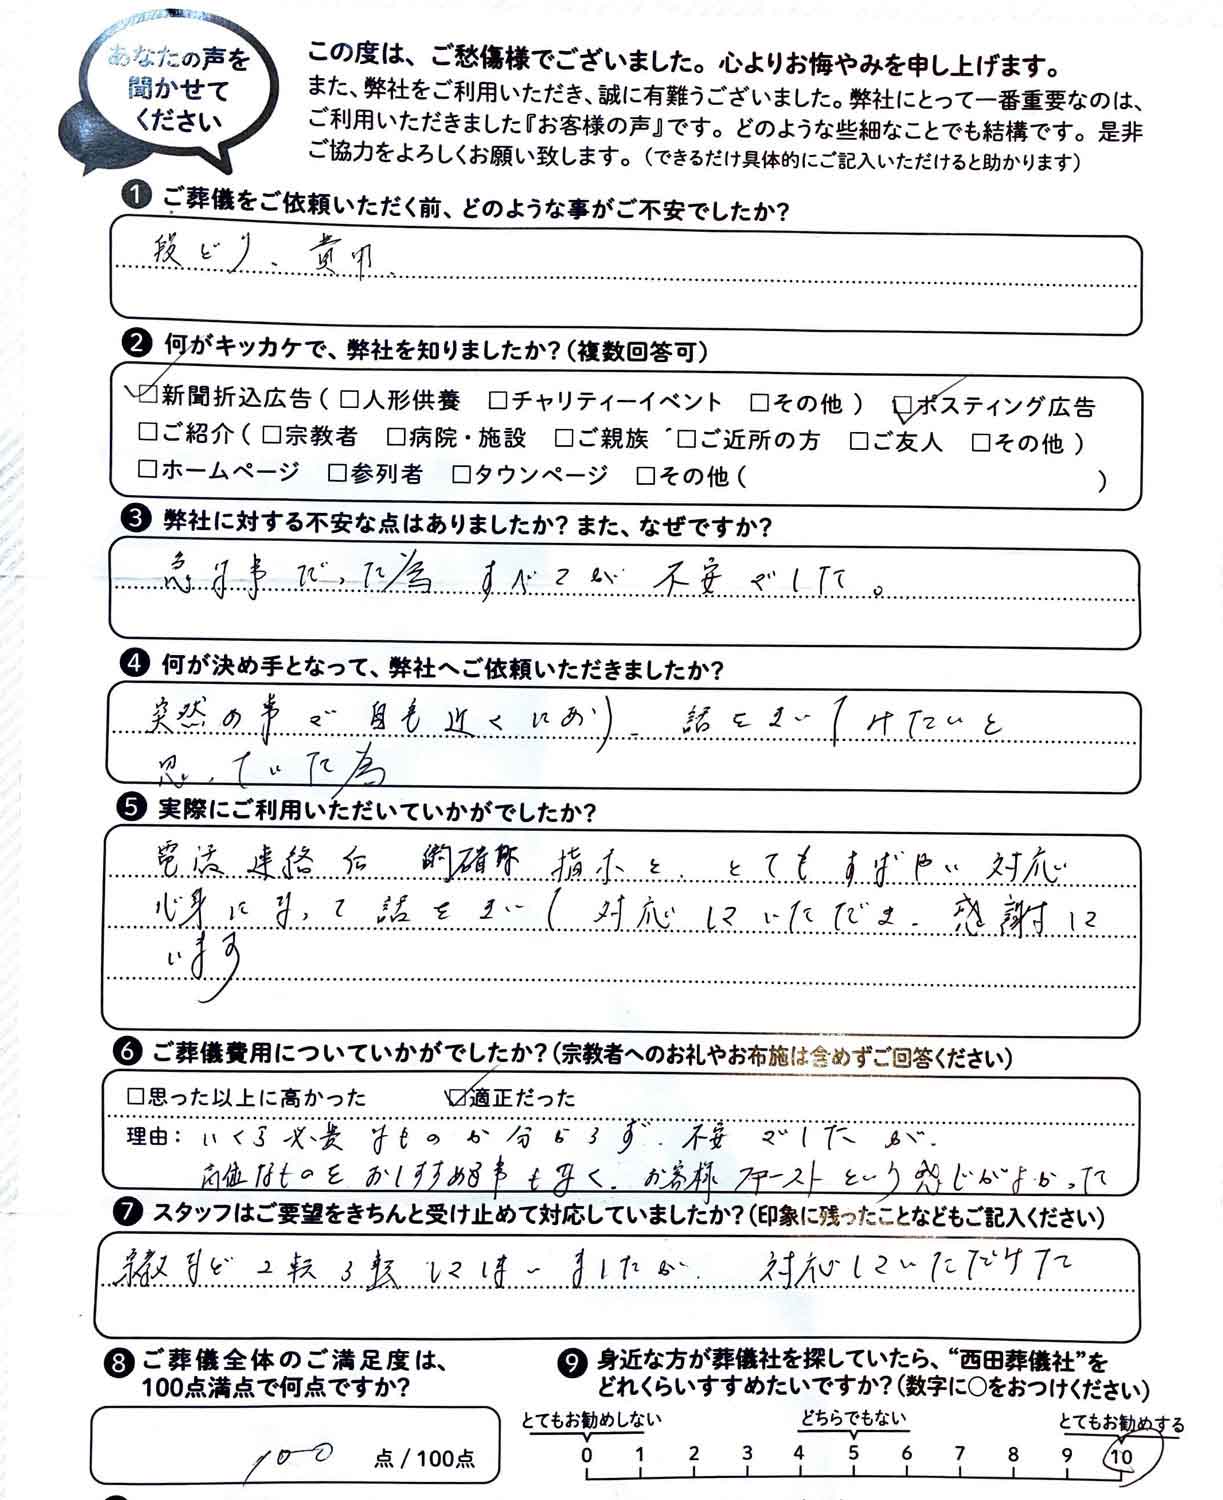 あなたの声を
聞かせて
ください
この度は、ご愁傷様でございました。心よりお悔やみを申し上げます。
また、弊社をご利用いただき、誠に有難うございました。弊社にとって一番重要なのは、
ご利用いただきました『お客様の声』です。どのような些細なことでも結構です。是非
ご協力をよろしくお願い致します。（できるだけ具体的にご記入いただけると助かります）
1 ご葬儀をご依頼いただく前、どのような事がご不安でしたか？
段どり、費用、
2 何がキッカケで、弊社を知りましたか？（複数回答可）
☑新聞折込広告（ □人形供養 □チャリティーイベント □その他 ） ☑ポスティング広告
□ご紹介（ □宗教者 □病院・施設 □ご親族 □ご近所の方 □ご友人 □その他 ）
□ホームページ □参列者 □タウンページ □その他（ ）
3 弊社に対する不安な点はありましたか？また、なぜですか？
急な事だった為 すべてが 不安でした。
4 何が決め手となって、弊社へご依頼いただきましたか？
突然の事で 自宅近くにあり、話を
思っていた為
5 実際にご利用いただいていかがでしたか？
電話連絡 的確な 指示と、とてもすばやい対応
心身になって 話を 対応していただき、感謝して
います
6 ご葬儀費用についていかがでしたか？（宗教者へのお礼やお布施は含めずご回答ください）
□思った以上に高かった ☑適正だった
理由： いくら必要なものか分からず、不安でしたが、
高価なものをおしすすめる事も無く、お客様ファーストという感じがよかった
7 スタッフはご要望をきちんと受け止めて対応していましたか？（印象に残ったことなどもご記入ください）
など 2転3転してしまいましたが、対応していただけた
8 ご葬儀全体のご満足度は、
100点満点で何点ですか？
100 点 / 100点
9 身近な方が葬儀社を探していたら、“西田葬儀社”を
どれくらいすすめたいですか？（数字に○をおつけください）
とてもお勧めしない どちらでもない とてもお勧めする
0 1 2 3 4 5 6 7 8 9 10